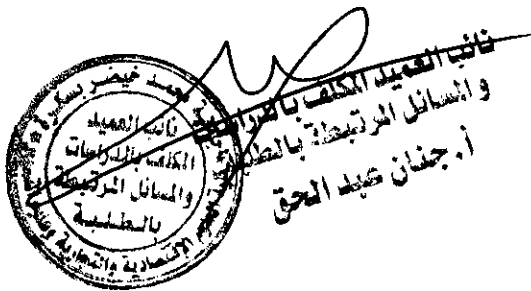 نائب العميد المكلف بالدراسات
و المسائل المرتبطة بالطلبة
أ. جنان عبد الحق
محمد خيضر بسكرة
نائب العميد
المكلف بالدراسات
والمسائل المرتبطة
بالطلبة
الإقتصادية والتجارية